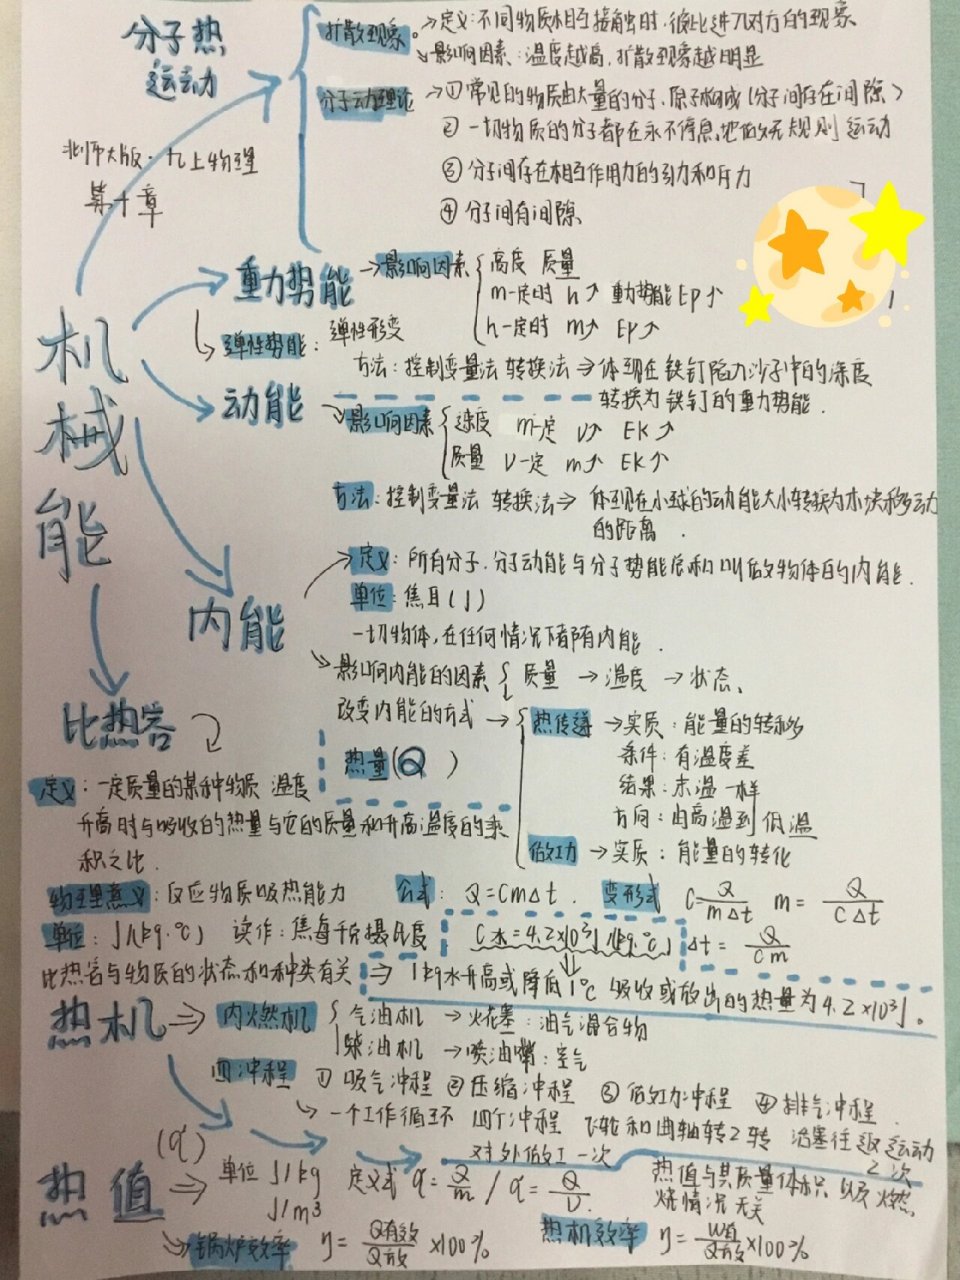 分子热
运动
扩散现象
定义:不同物质相互接触时,彼此进入对方的现象
影响因素:温度越高,扩散现象越明显
分子动理论
①常见的物质由大量的分子、原子构成(分子间存在间隙)
②一切物质的分子都在永不停息地做无规则运动
③分子间存在相互作用力的引力和斥力
④分子间有间隙
北师大版·九上物理
第十章
机械能
重力势能
影响因素
高度 质量
m一定时 h↑ 重力势能Ep↑
h一定时 m↑ Ep↑
弹性势能:弹性形变
方法:控制变量法 转换法⇒体现在铁钉陷入沙子中的深度
转换为铁钉的重力势能.
动能
影响因素
速度 m一定 v↑ EK↑
质量 V一定 m↑ EK↑
方法:控制变量法 转换法⇒体现在小球的动能大小转换为木块移动
的距离.
内能
定义:所有分子,分子动能与分子势能总和叫做物体的内能.
单位:焦耳(J)
一切物体,在任何情况下都有内能.
影响内能的因素 质量→温度→状态、
改变内能的方式→
热传递→实质:能量的转移
条件:有温度差
结果:末温一样
方向:由高温到低温
做功→实质:能量的转化
热量(Q)
比热容
定义:一定质量的某种物质 温度
升高时与吸收的热量与它的质量和升高温度的乘
积之比.
物理意义:反应物质吸热能力
公式:Q=Cm△t.
变形式 C=Q/m△t m=Q/C△t
△t=Q/cm
单位:J/(kg·℃) 读作:焦每千克摄氏度
C水=4.2×10³J/(kg·℃)
比热容与物质的状态和种类有关
⇒1kg水升高或降低1℃ 吸收或放出的热量为4.2×10³J。
热机⇒
内燃机
汽油机→火花塞:油气混合物
柴油机→喷油嘴:空气
四冲程 ①吸气冲程 ②压缩冲程 ③做功冲程 ④排气冲程.
一个工作循环 四个冲程 飞轮和曲轴转2转 活塞往返运动
2次
对外做工一次
(q)
热值⇒
单位 J/kg
J/m³
定义式 q=Q/m / q=Q/V
热值与其质量体积以及燃
烧情况无关
锅炉效率 η=Q有效/Q放×100%
热机效率 η=W有/Q放×100%